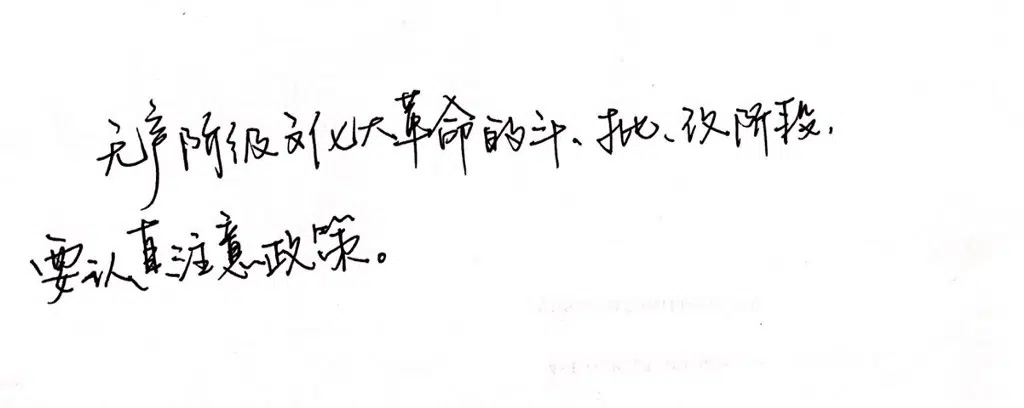 无产阶级文化大革命的斗、批、改阶段,
要认真注意政策。